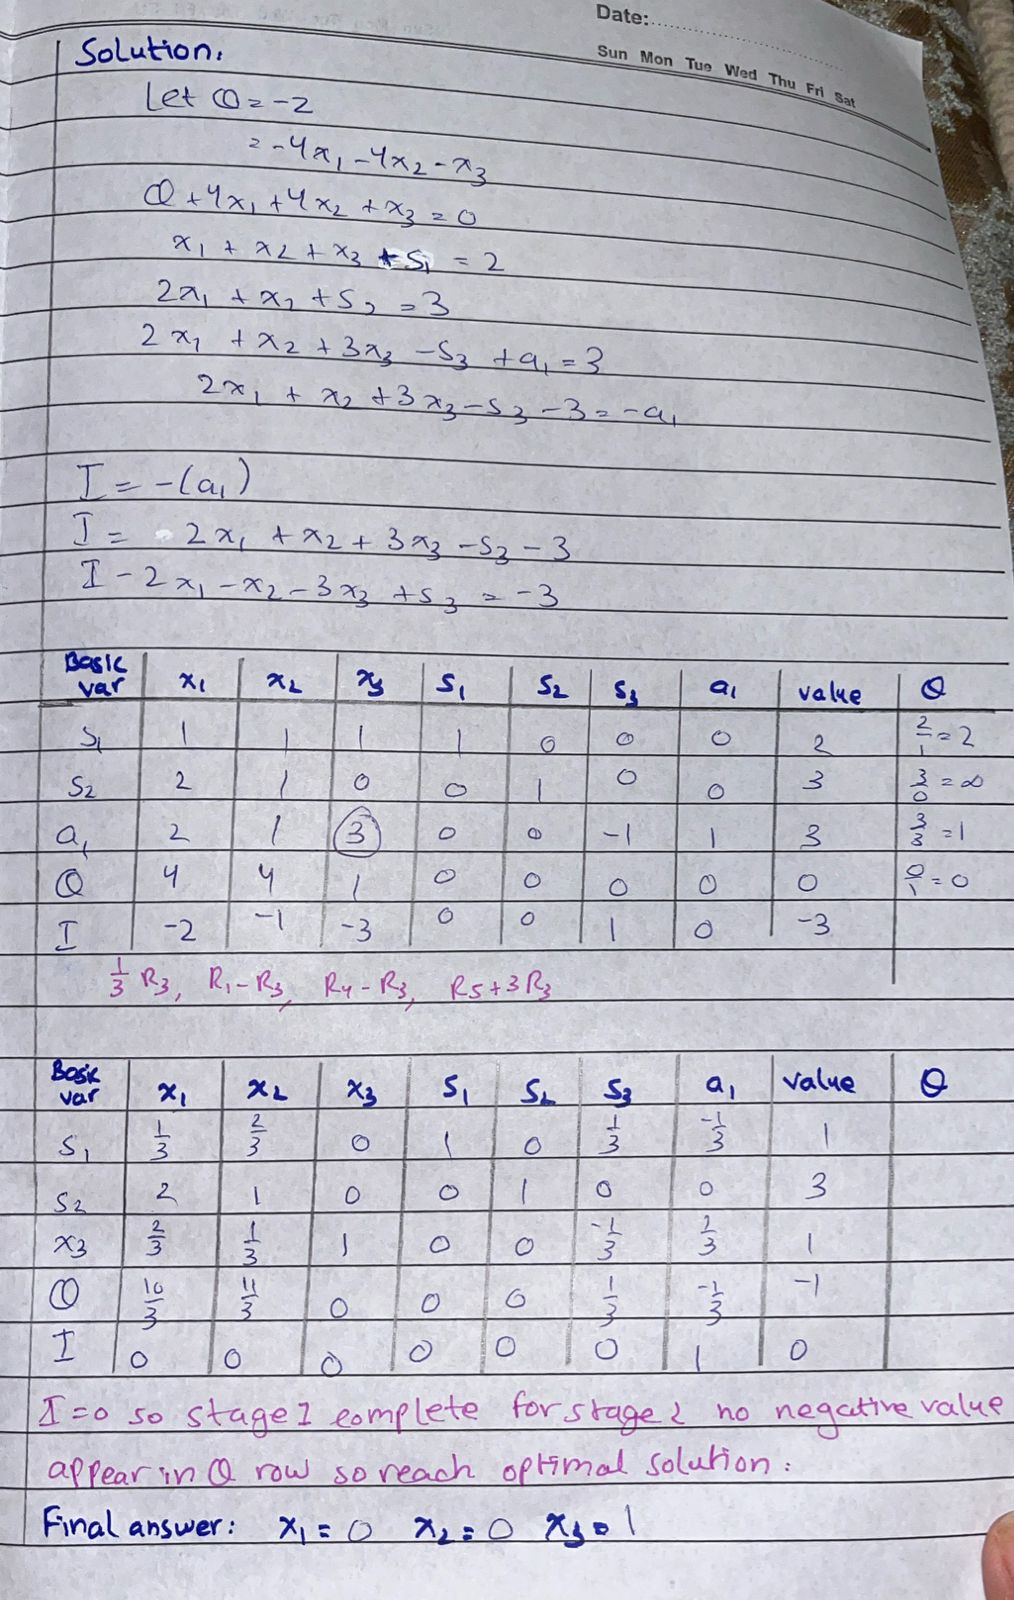 Date:
Sun Mon Tue Wed Thu Fri Sat
Solution:
Let Q = -2
= -4x₁ - 4x₂ - x₃
Q + 4x₁ + 4x₂ + x₃ = 0
x₁ + x₂ + x₃ + S₁ = 2
2x₁ + x₂ + S₂ = 3
2x₁ + x₂ + 3x₃ - S₃ + a₁ = 3
2x₁ + x₂ + 3x₃ - S₃ - 3 = -a₁
I = -(a₁)
I = 2x₁ + x₂ + 3x₃ - S₃ - 3
I - 2x₁ - x₂ - 3x₃ + S₃ = -3
Basic var x₁ x₂ x₃ S₁ S₂ S₃ a₁ value Q
S₁ 1 1 1 1 0 0 0 2 2/1 = 2
S₂ 2 1 0 0 1 0 0 3 3/0 = ∞
a₁ 2 1 3 0 0 -1 1 3 3/3 = 1
Q 4 4 1 0 0 0 0 0 0/1 = 0
I -2 -1 -3 0 0 1 0 -3
1/3 R₃, R₁ - R₃, R₄ - R₃, R5 + 3R₃
Basic var x₁ x₂ x₃ S₁ S₂ S₃ a₁ value Q
S₁ 1/3 2/3 0 1 0 1/3 -1/3 1
S₂ 2 1 0 0 1 0 0 3
x₃ 2/3 1/3 1 0 0 -1/3 1
Q 10/3 11/3 0 0 0 1/3 -1/3 -1
I 0 0 0 0 0 0 1 0
I = 0 so stage 1 complete for stage 2 no negative value
appear in Q row so reach optimal solution.
Final answer: x₁ = 0 x₂ = 0 x₃ = 1